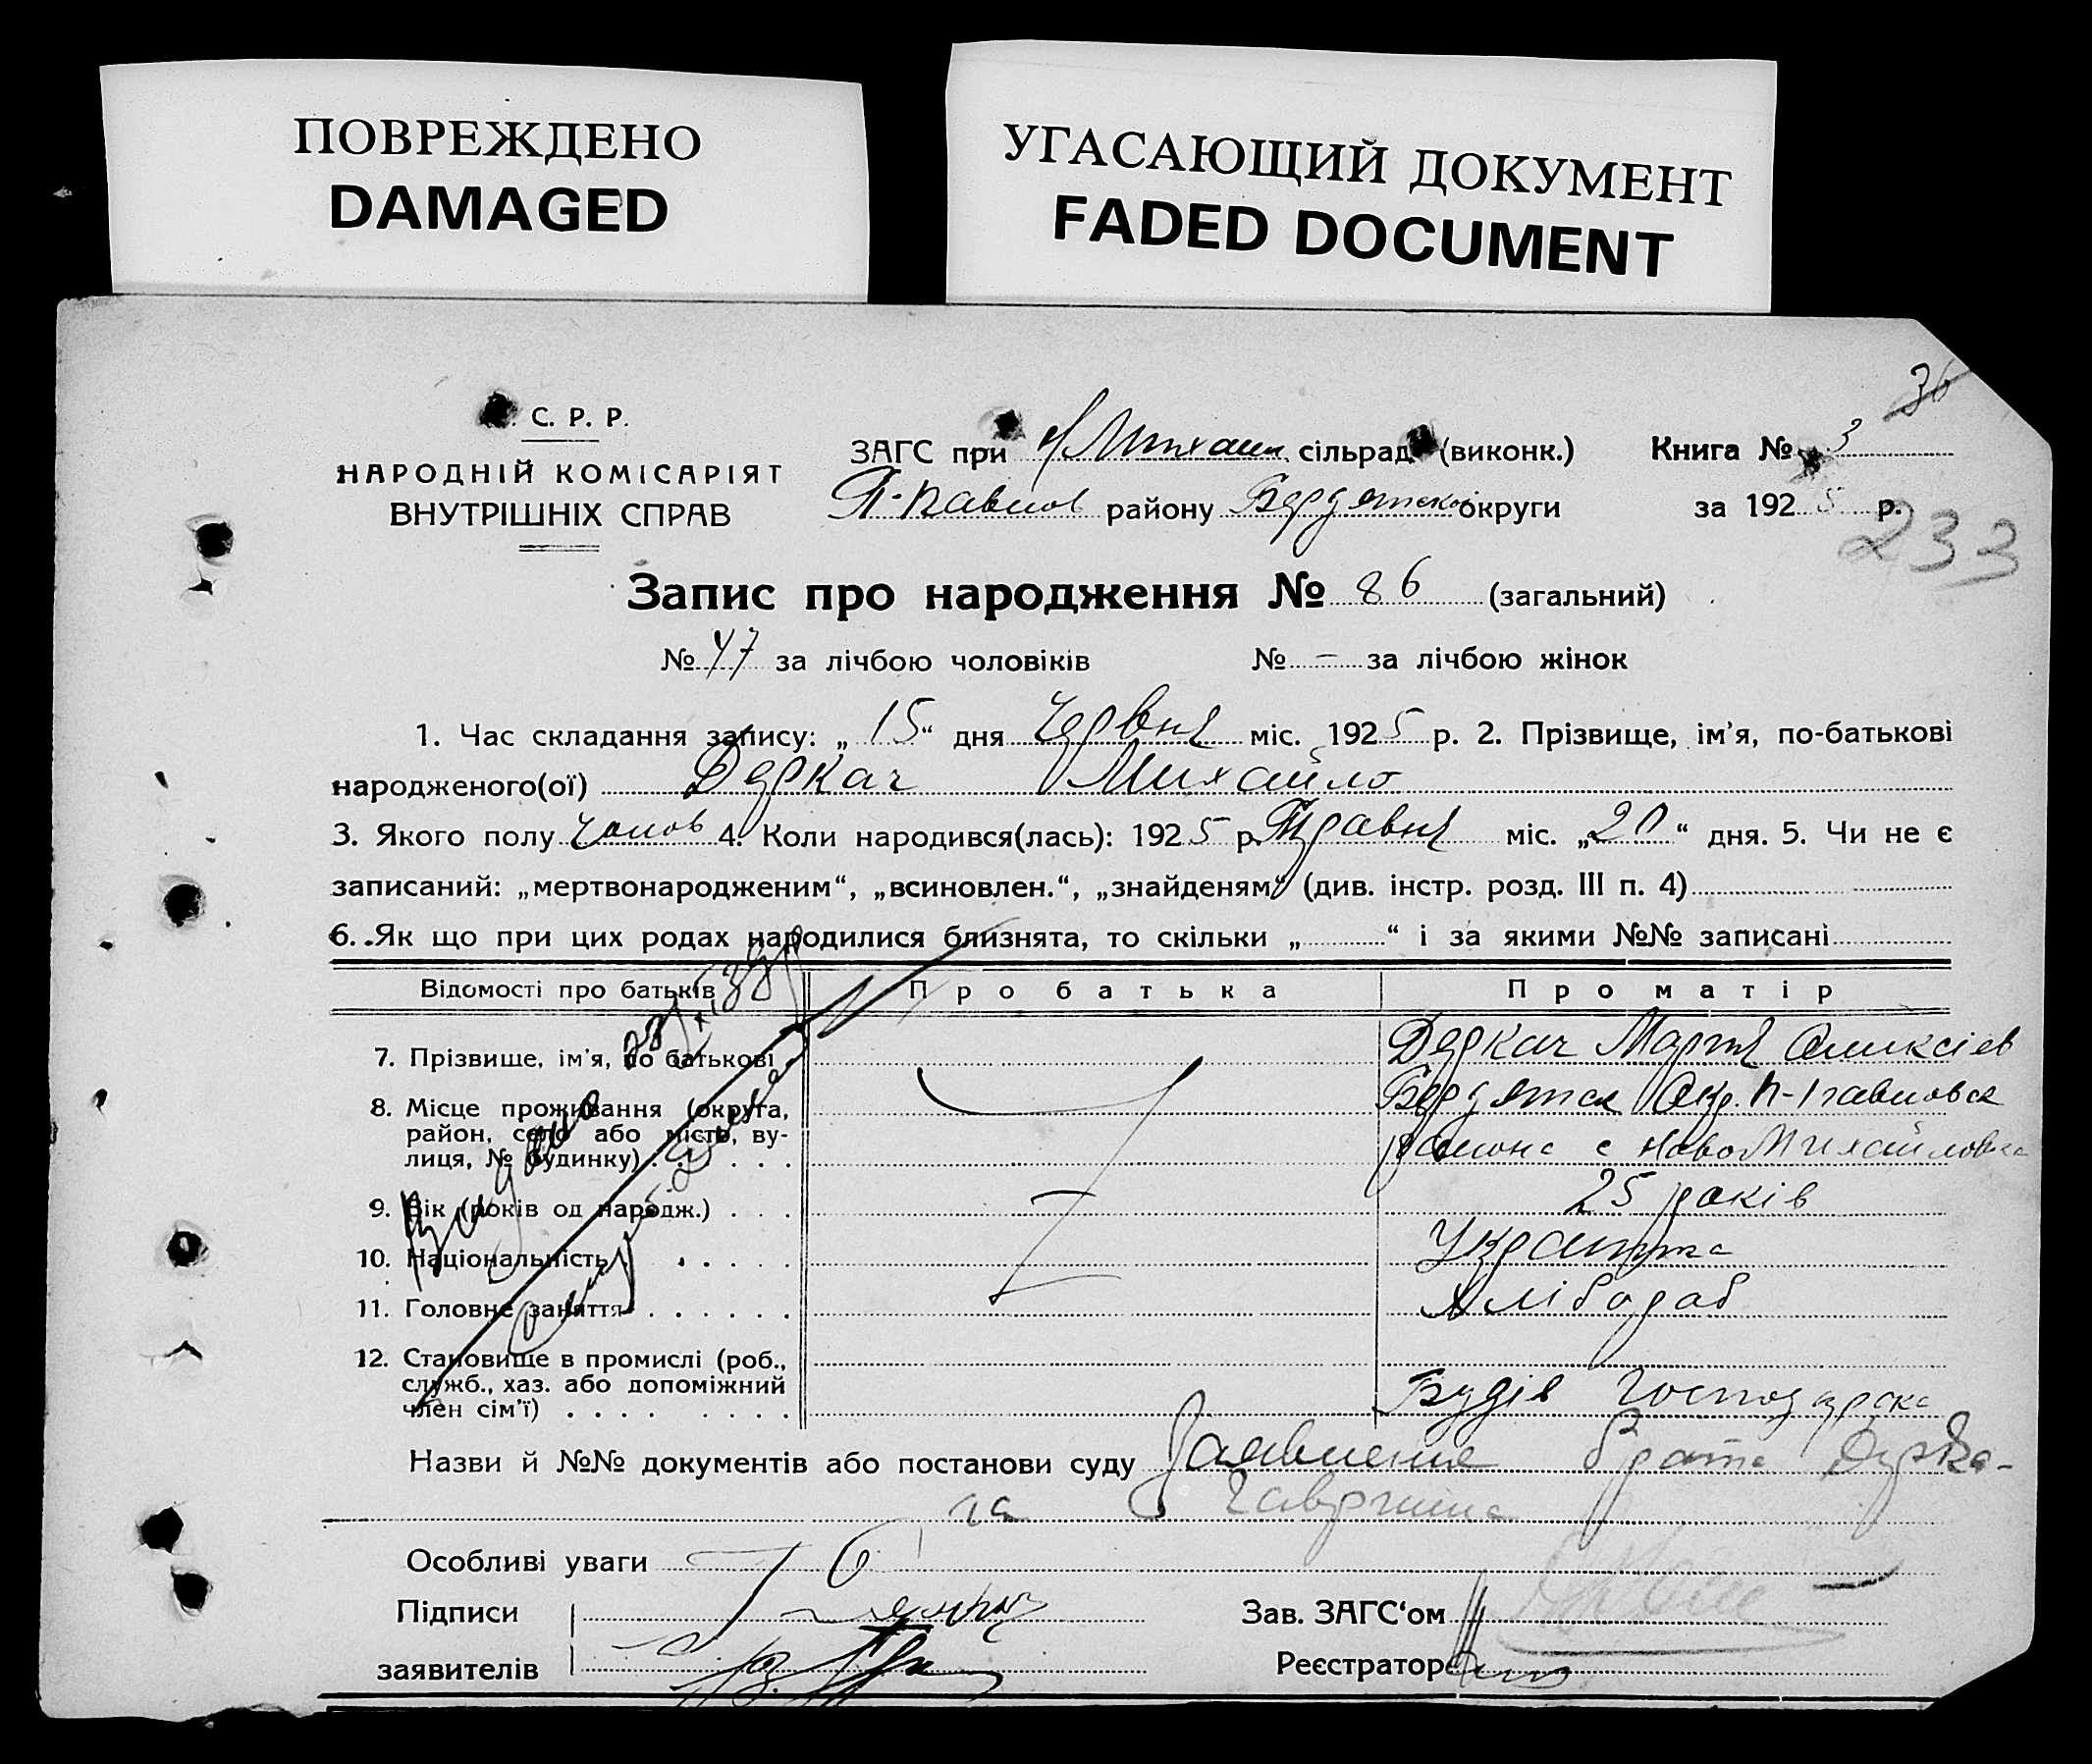 ПОВРЕЖДЕНО
DAMAGED
УГАСАЮЩИЙ ДОКУМЕНТ
FADED DOCUMENT
36
С. Р. Р.
НАРОДНІЙ КОМІСАРІЯТ
ВНУТРІШНІХ СПРАВ
ЗАГС при Н Михайл сільрад (виконк.) Книга № 3
П-Павлов району Бердянської округи за 1925 р.
233
Запис про народження № 86 (загальний)
№ 47 за лічбою чоловіків № – за лічбою жінок
1. Час складання запису: „15“ дня Червня міс. 1925 р. 2. Прізвище, ім'я, по-батькові
народженого(ої) Деркач Михайло
3. Якого полу Чолов 4. Коли народився(лась): 1925 р. Травня міс. „20“ дня. 5. Чи не є
записаний: „мертвонародженим“, „всиновлен.“, „знайденям“ (див. інстр. розд. III п. 4)
6. Як що при цих родах народилися близнята, то скільки „ “ і за якими №№ записані
Відомості про батьків Про батька Про матір
7. Прізвище, ім'я, по батькові Деркач Марія Оликсіев
8. Місце проживання (округа, Бердянск Окр. П-Павловск
район, село або місто, ву-
лиця, № будинку) района с НовоМихайловка
9. Вік (років од народж.) 25 років
10. Національність Українка
11. Головне заняття Хлібороб
12. Становище в промислі (роб.,
служб., хаз. або допоміжний
член сім'ї)
Назви й №№ документів або постанови суду Заявления брата Дерка-
ча Гаврила
Особливі уваги
Підписи
заявителів
Зав. ЗАГС'ом
Реєстратор